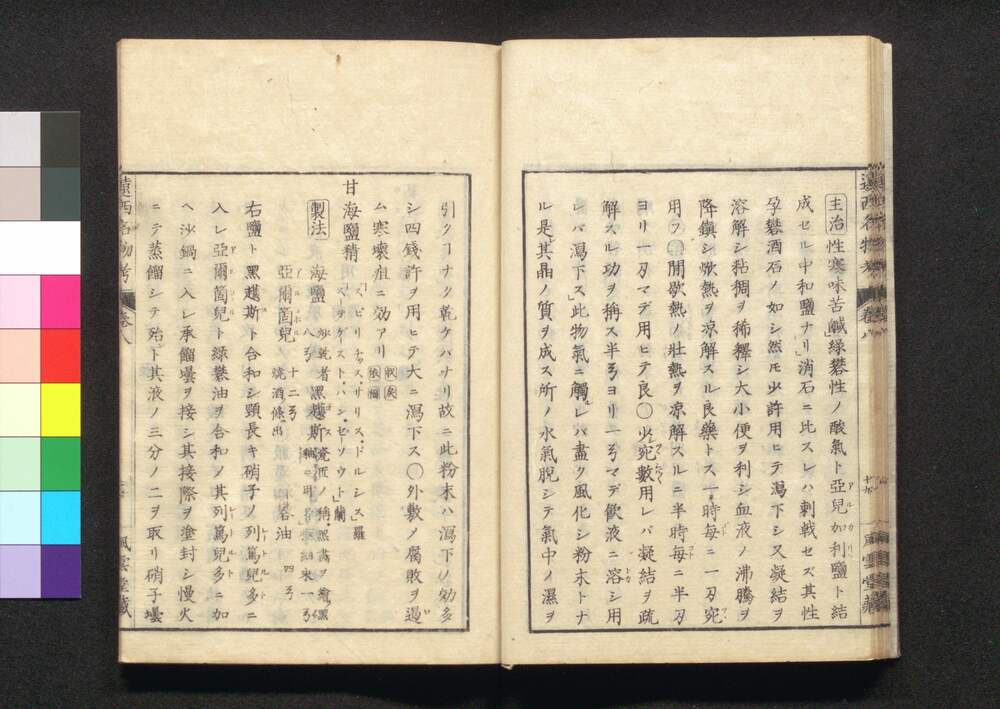 主治性寒味苦鹹緑礬性ノ酸氣ト亞兒加利鹽ト結
成セル中和鹽ナリ」消石ニ比スレハ刺戟セズ其性
孕礬酒石ノ如シ然モ少許用ヒテ瀉下シ又凝結ヲ
溶解シ粘稠ヲ稀釋シ大小便ヲ利シ血液ノ沸騰ヲ
降鎮シ焮熱ヲ凉解スル良藥トス一時毎ニ一刀
用フ〇間歇熱ノ壯熱ヲ凉解スルニ半時毎ニ半刀
ヨリ一刀マデ用ヒテ良〇少 數用レバ凝結ヲ疏
解スル功ヲ稱ス半 ヨリ一 マデ飲液ニ溶シ用
レバ瀉下ス」此物氣ニ觸レバ盡ク風化シ粉末トナ
ル是其晶ノ質ヲ成ス所ノ水氣脱シテ氣中ノ濕ヲ
引クヿナク乾ケバナリ故ニ此粉末ハ瀉下ノ効多
シ四錢許ヲ用ヒテ大ニ瀉下ス〇外敷ノ腐敗ヲ過
ム寒壊疽ニ效アリ
甘海鹽精 「スピリチュス・サリス・ドルシス」羅
「ソーデゲイスト・ハン・セソウト」蘭
製法 海鹽 炒乾者 八 黒
亞爾箇兒 十二 燒酒條出 油 四
右鹽ト黒 斯ト合和シ頸長キ硝子ノ列篤兒多ニ
入レ亞爾箇兒ト緑礬油ヲ合和ノ其列篤兒多ニ加
ヘ沙鍋ニ入レ承餾壜ヲ接シ其接際ヲ塗封シ慢火
ニテ蒸餾シテ殆ト其液ノ三分ノ二ヲ取リ硝子壜
遠西名物考 卷八
風雲堂藏